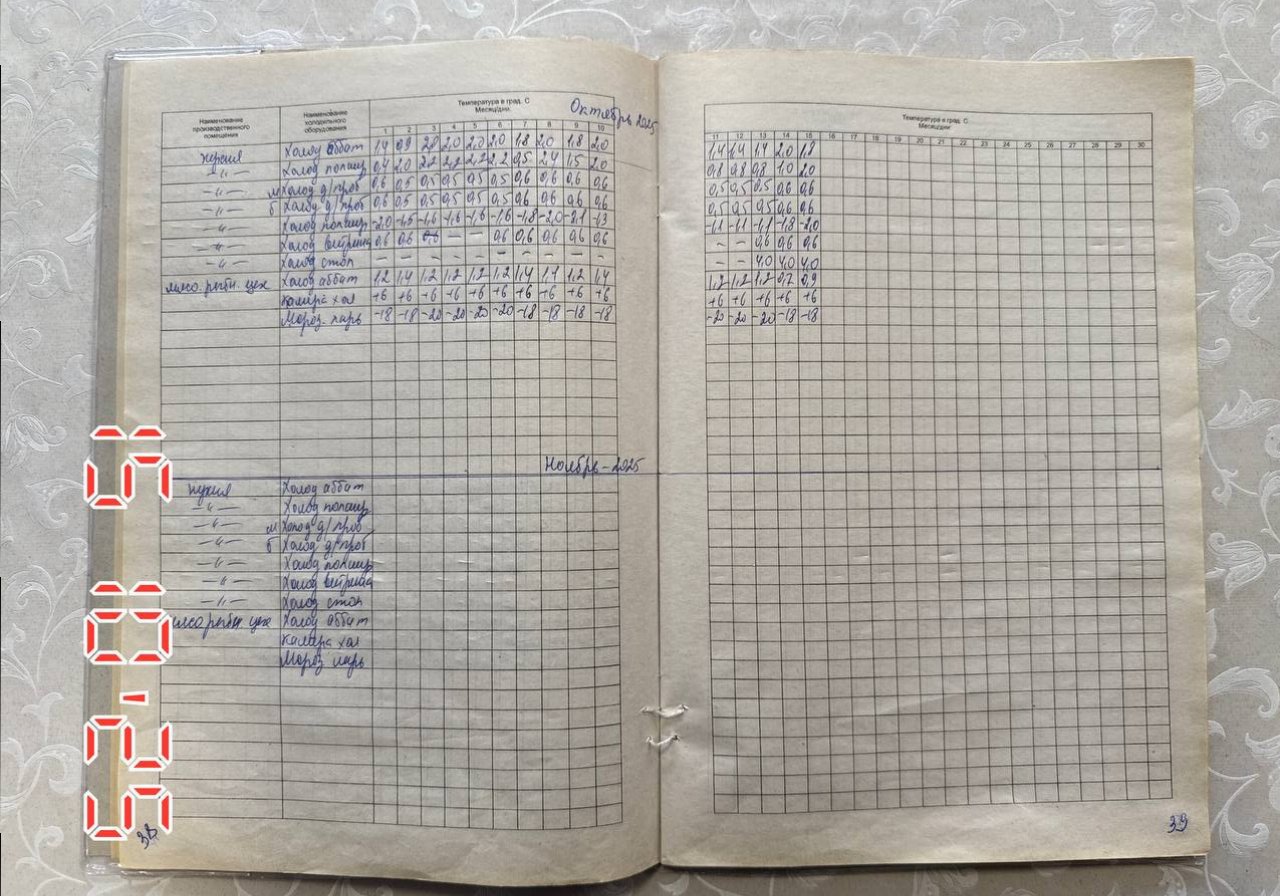 Октябрь 2025
Наименование производственного помещения
Наименование холодильного оборудования
Температура в град. С
Месяц/дни:
1 2 3 4 5 6 7 8 9 10
кухня Холод аббат 1,4 0,9 2,0 2,0 2,0 2,0 1,8 2,0 1,8 2,0
-"- Холод полаир 0,4 2,0 2,2 2,2 2,2 2,2 0,5 2,4 1,5 2,0
-"- м Холод д/проб 0,6 0,5 0,5 0,5 0,5 0,5 0,6 0,6 0,6 0,6
-"- б Холод д/проб 0,6 0,5 0,5 0,5 0,5 0,5 0,6 0,6 0,6 0,6
-"- Холод полаир -2,0 -1,5 -1,6 -1,6 -1,6 -1,6 -1,8 -2,0 -2,1 -1,3
-"- Холод витрина 0,6 0,6 0,6 – – 0,6 0,6 0,6 0,6 0,6
-"- Холод стол – – – – – – – – – –
мясо.рыбн. цех Холод аббат 1,2 1,4 1,2 1,2 1,2 1,2 1,4 1,4 1,2 1,4
Камера хол +6 +6 +6 +6 +6 +6 +6 +6 +6 +6
Мороз. ларь -18 -18 -20 -20 -20 -20 -18 -18 -18 -18
Ноябрь-2025
кухня Холод аббат
-"- Холод полаир
-"- м Холод д/проб
-"- б Холод д/проб
-"- Холод полаир
-"- Холод витрина
-"- Холод стол
мясо рыбн. цех Холод аббат
Камера хол
Мороз ларь
38
Температура в град. С
Месяц/дни:
11 12 13 14 15 16 17 18 19 20 21 22 23 24 25 26 27 28 29 30
1,4 1,4 1,4 2,0 1,8
0,8 0,8 0,8 1,0 2,0
0,5 0,5 0,5 0,6 0,6
0,5 0,5 0,5 0,6 0,6
-1,1 -1,1 -1,1 -1,8 -2,0
– – 0,6 0,6 0,6
– – 4,0 4,0 4,0
1,2 1,2 1,2 0,7 0,9
+6 +6 +6 +6 +6
-20 -20 -20 -18 -18
39
52.10 15